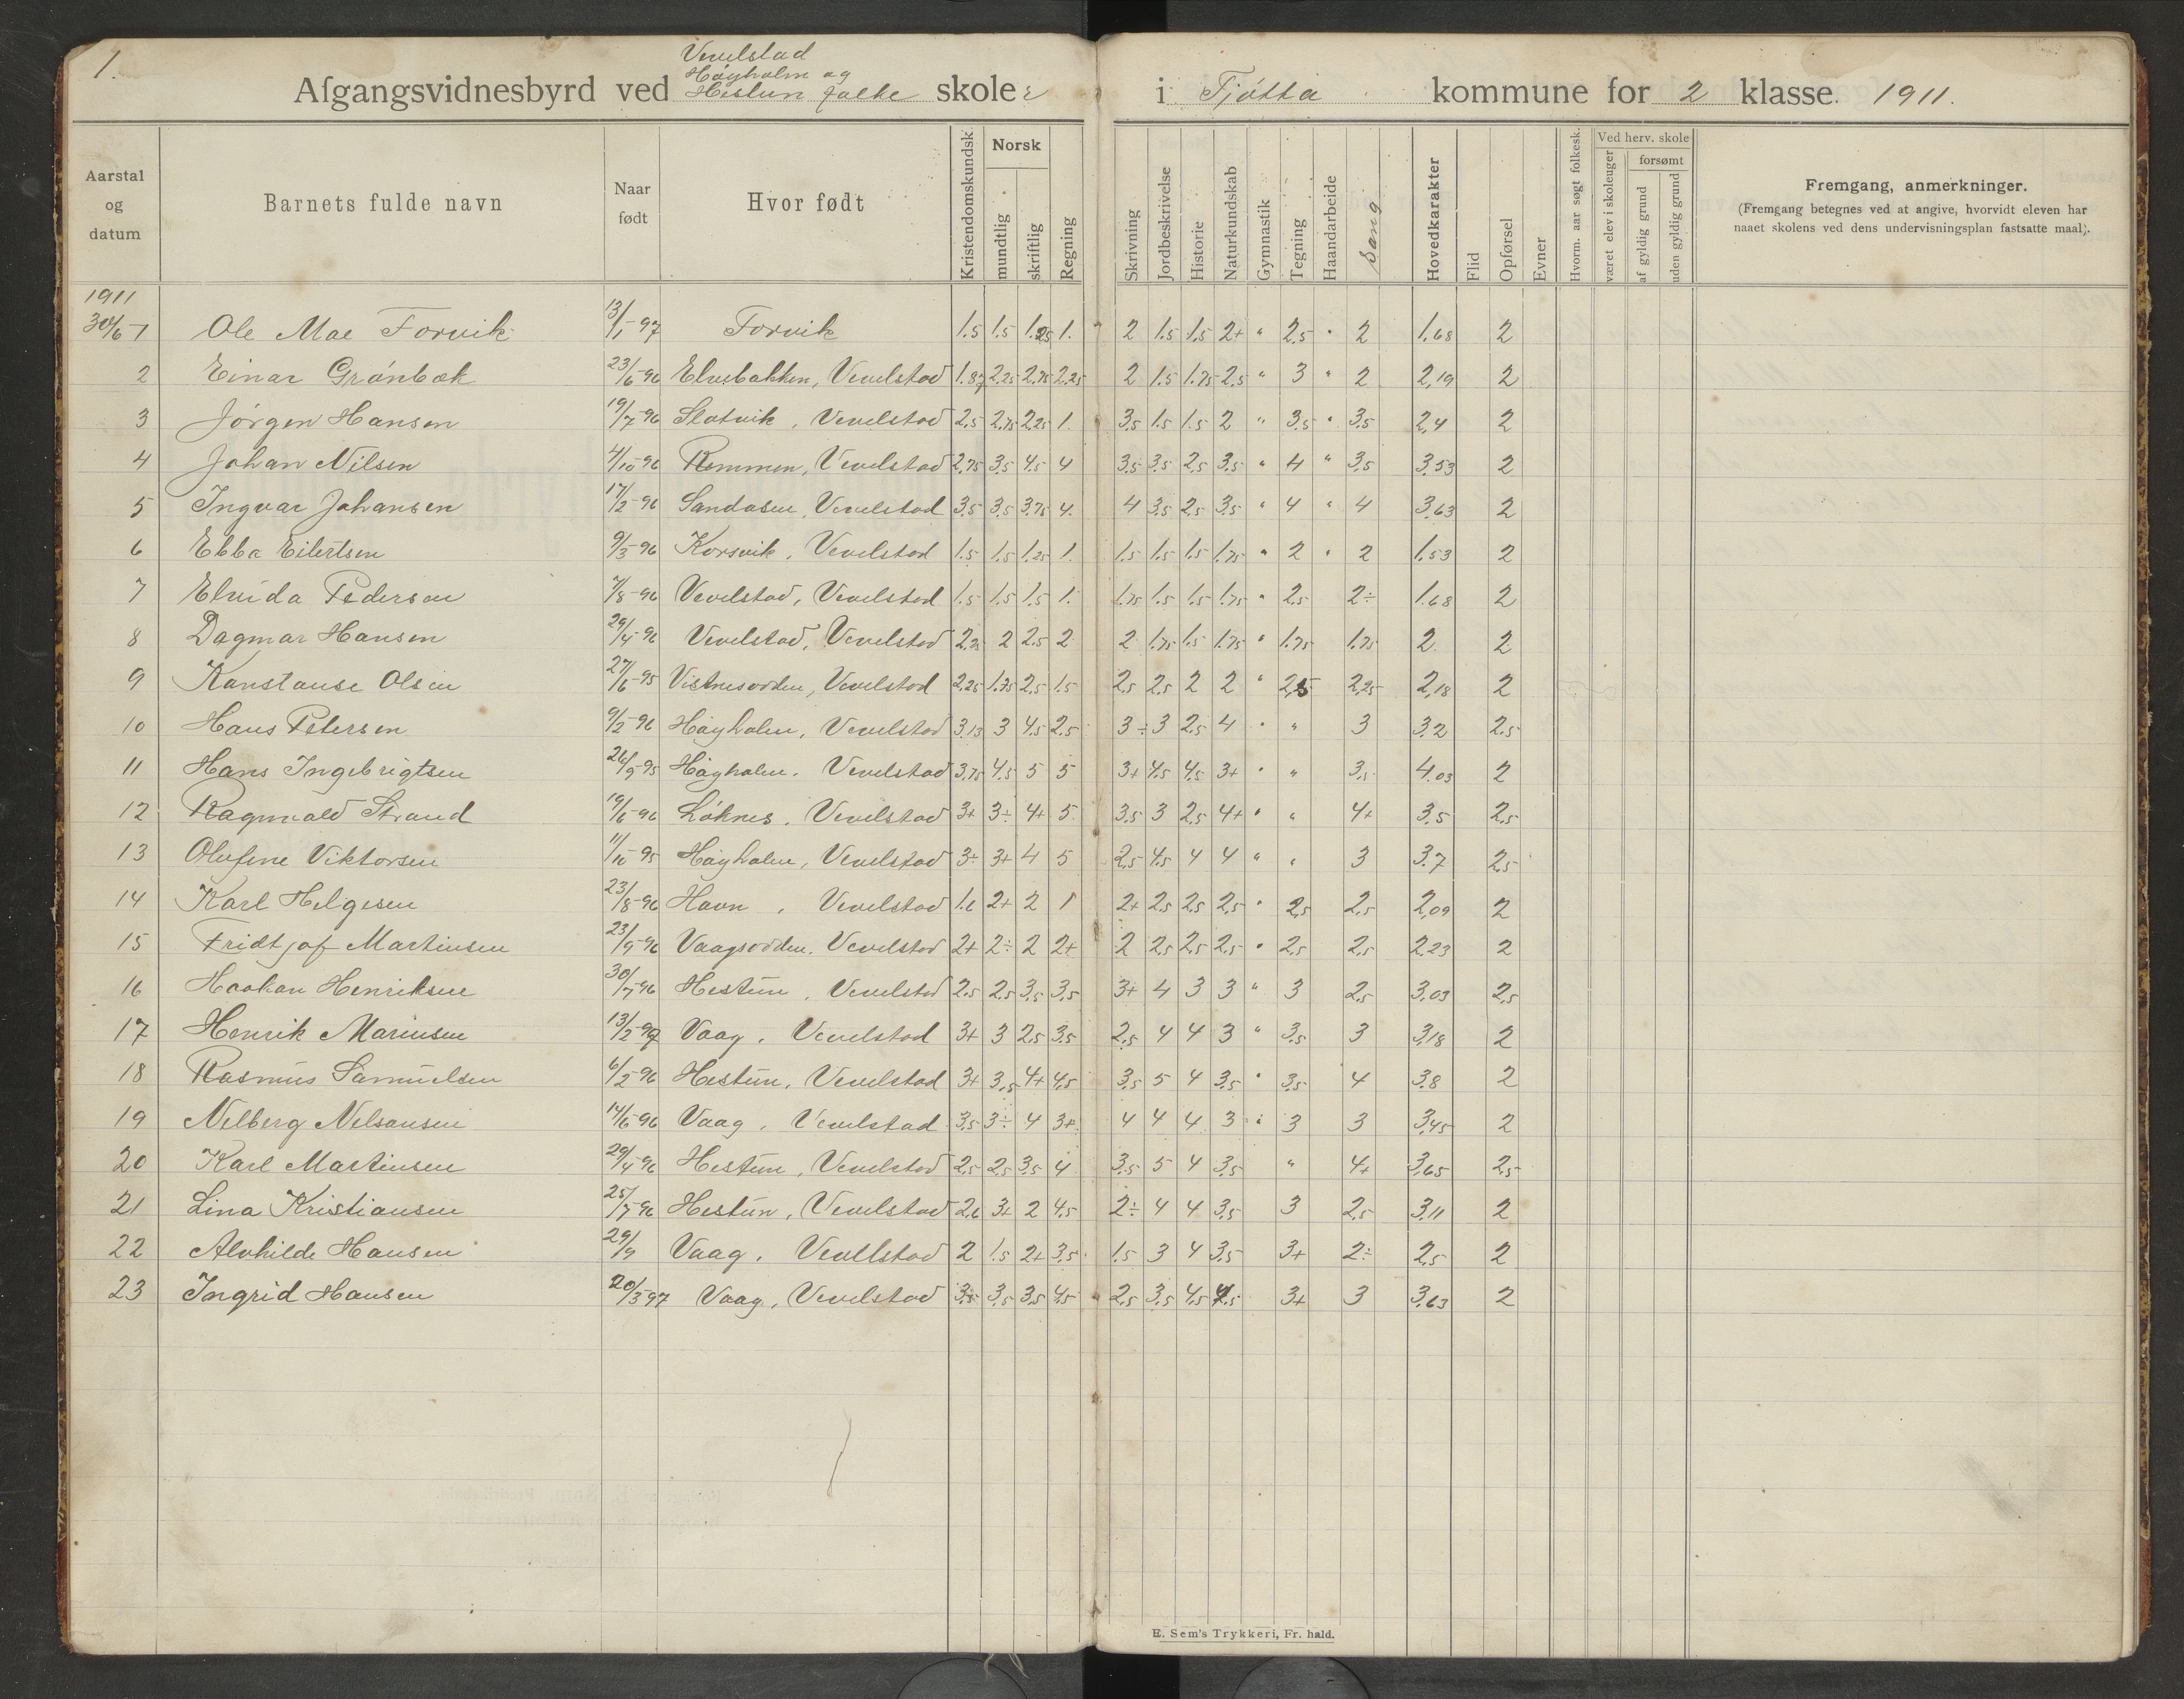 1.
Vevelstad
Høyholm og
Afgangsvidnesbyrd ved Hestun folke skoler i Tjøtta kommune for 2 klasse. 1911.
Aarstal og datum | Barnets fulde navn | Naar født | Hvor født | Kristendomskundsk. | Norsk mundtlig | skriftlig | Regning | Skrivning | Jordbeskrivelse | Historie | Naturkundskab | Gymnastik | Tegning | Haandarbeide | Sang | Hovedkarakter | Flid | Opførsel | Evner | Hvorm. aar søgt folkesk. | Ved herv. skole | været elev i skoleuger | forsømt | af gyldig grund | uden gyldig grund | Fremgang, anmerkninger.
(Fremgang betegnes ved at angive, hvorvidt eleven har
naaet skolens ved dens undervisningsplan fastsatte maal).
1911
30/6 1 Ole Mae Forvik 13/1-97 Forvik 1.5 1.5 1.25 1. 2 1.5 1.5 2+ " 2.5 " 2 1.68 2
2 Einar Grønbæk 23/6-96 Elvebakken, Vevelstad 1.87 2.25 2.75 2.25 2 1.5 1.75 2.5 " 3 " 2 2,19 2
3 Jørgen Hansen 19/7-96 Slotvik, Vevelstad 2.5 2.75 2.25 1. 3.5 1.5 1.5 2 " 3.5 " 3.5 2,4 2
4 Johan Nilsen 4/10-96 Remmen, Vevelstad 2.75 3.5 4.5 4 3.5 3.5 2.5 3.5 " 4 " 3.5 3.53 2
5 Ingvar Johansen 17/2-96 Sandåsen, Vevelstad 3.5 3.5 3.75 4. 4 3.5 2.5 3.5 " 4 " 4 3,63 2
6 Ebba Eilertsen 9/3-96 Korsvik, Vevelstad 1.5 1.5 1.25 1. 1.5 1.5 1.5 1.75 " 2 " 2 1.53 2
7 Elvida Pedersen 7/8-96 Vevelstad, Vevelstad 1.5 1.5 1.5 1. 1.75 1.5 1.5 1.75 " 2.5 2÷ 1.68 2
8 Dagmar Hansen 29/4-96 Vevelstad, Vevelstad 2.25 2 2.5 2 2 1.75 1.5 1.75 " 1.75 1.75 2 2
9 Konstanse Olsen 27/6-95 Vistnesodden, Vevelstad 2.25 1.75 2.5 1.5 2.5 2.5 2 2 " 2.5 2.25 2,18 2
10 Hans Petersen 9/2-96 Høyholm, Vevelstad 3.13 3 4.5 2.5 3÷ 3 2.5 4 " " 3 3.2 2.5
11 Hans Ingebrigtsen 26/9-95 Høyholm. Vevelstad 3.75 4.5 5 5 3+ 4.5 4.5 3+ " " 3.5 4.03 2
12 Ragnvald Strand 19/6-96 Løknes, Vevelstad 3+ 3÷ 4+ 5 3.5 3 2.5 4+ " " 4+ 3.5 2.5
13 Olufine Viktorsen 11/10-95 Høyholm, Vevelstad 3÷ 3+ 4 5 2.5 4.5 4 4 " " 3 3.7 2.5
14 Karl Helgesen 23/8-96 Havn, Vevelstad 1.6 2+ 2 1 2+ 2.5 2.5 2.5 " 2.5 2.5 2,09 2
15 Fridtjof Martinsen 23/9-96 Vaagsodden. Vevelstad 2+ 2÷ 2 2+ 2 2.5 2.5 2.5 " 2.5 2.5 2.23 2
16 Haakon Henriksen 30/7-96 Hestun, Vevelstad 2.5 2.5 3.5 3.5 3+ 4 3 3 " 3 2.5 3.03 2.5
17 Henrik Mariusen 13/2-97 Vaag, Vevelstad 3+ 3 2.5 3.5 2.5 4 4 3 " 3.5 3 3.18 2
18 Rasmus Samuelsen 6/2-96 Hestun, Vevelstad 3+ 3.5 4+ 4.5 3.5 5 4 3.5 " 3.5 4 3.8 2
19 Nelberg Nelsansen 14/6-96 Vaag, Vevelstad 3.5 3÷ 4 3+ 4 4 4 3 " 3 3 3.45 2
20 Karl Martinsen 29/4-96 Hestun, Vevelstad 2.5 2.5 3.5 4 3.5 5 4 3.5 " 4+ 3.65 2.5
21 Lina Kristiansen 25/7-96 Hestun, Vevelstad 2.6 3+ 2 4.5 2÷ 4 4 3.5 3 2.5 3.11 2
22 Alvhilde Hansen 29/9 Vaag, Vevelstad 2 1.5 2+ 3.5 1.5 3 4 3.5 3+ 2÷ 2.5 2
23 Ingrid Hansen 20/3-97 Vaag, Vevelstad 3.5 3.5 3.5 4.5 2.5 3.5 4.5 4.5 3+ 3 3.63 2
E. Sem's Trykkeri, Fr. hald.